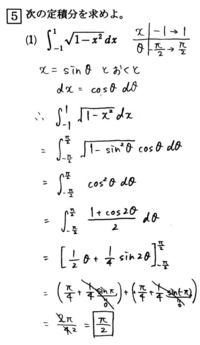 5 次の定積分を求めよ。
(1) ∫_{-1}^{1} √(1-x²) dx
x | -1 → 1
θ | -π/2 → π/2
x = sinθ とおくと
dx = cosθ dθ
∴ ∫_{-1}^{1} √(1-x²) dx
= ∫_{-π/2}^{π/2} √(1-sin²θ) cosθ dθ
= ∫_{-π/2}^{π/2} cos²θ dθ
= ∫_{-π/2}^{π/2} (1+cos2θ)/2 dθ
= [1/2 θ + 1/4 sin2θ]_{-π/2}^{π/2}
= (π/4 + 1/4 sinπ) + (π/4 + 1/4 sin(-π))
0 0
= 2π/4 2 = π/2